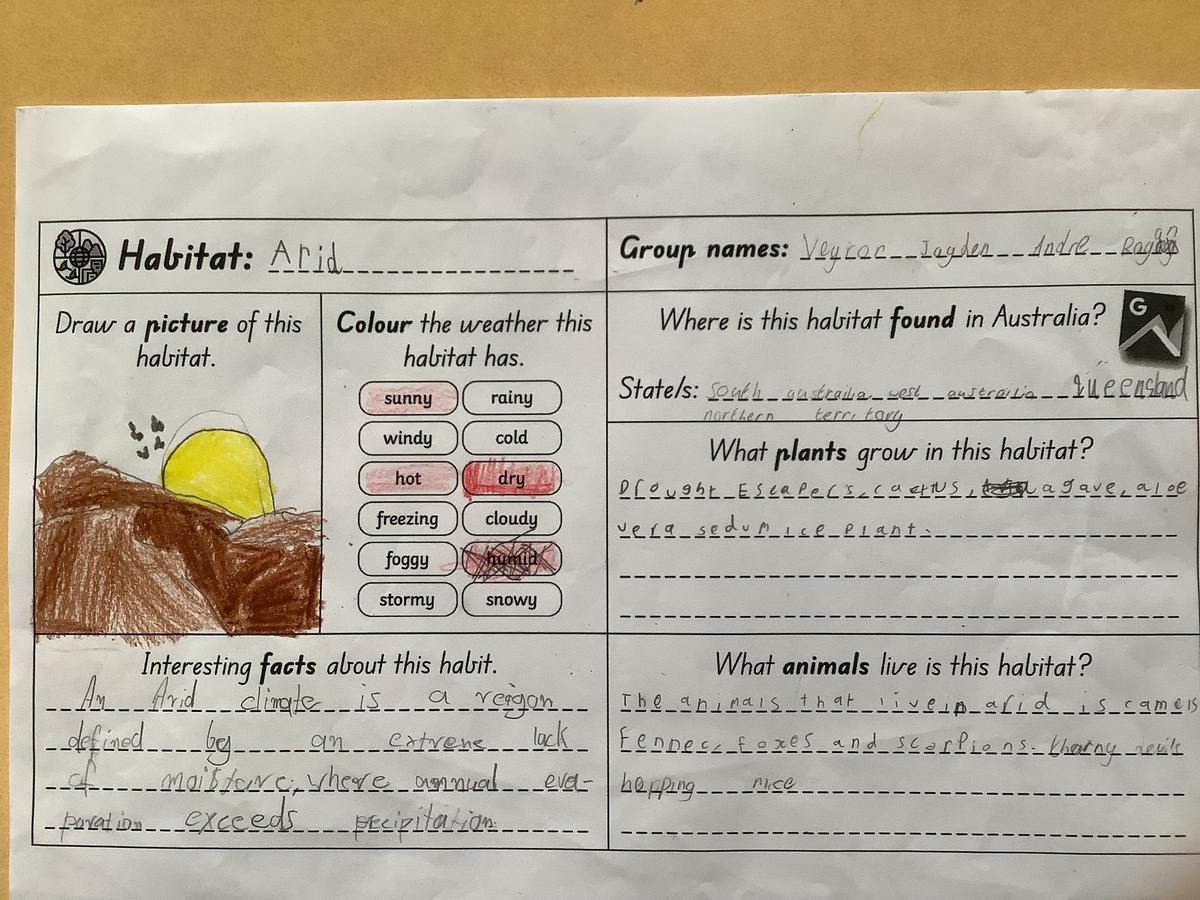 Habitat: Arid
Group names: Veyron Jayden Andre
Draw a picture of this
habitat.
Colour the weather this
habitat has.
sunny
rainy
windy
cold
hot
dry
freezing
cloudy
foggy
humid
stormy
snowy
Where is this habitat found in Australia?
G
State/s: south australia west australia queensland
northern territory
What plants grow in this habitat?
Drought Escapers, cactus, agave, aloe
vera sedum ice plant.
Interesting facts about this habit.
An Arid climate is a reigon
defined by an extreme lack
of moisture, where annual eva-
poration exceeds precipitation.
What animals live is this habitat?
The animals that live in arid is camels
Fennec, foxes and scorpions. thorny devils
hopping mice